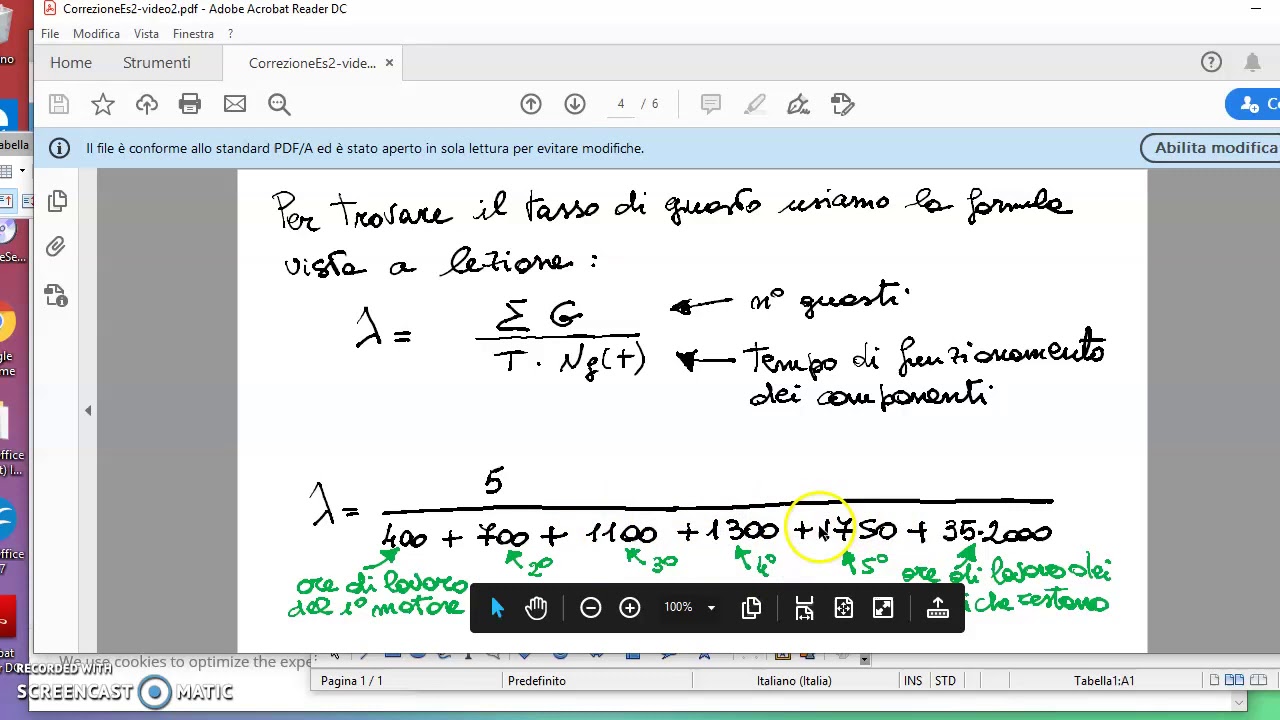 CorrezioneEs2-video2.pdf - Adobe Acrobat Reader DC
File Modifica Vista Finestra ?
Home Strumenti CorrezioneEs2-vide... ×
4 / 6
Il file è conforme allo standard PDF/A ed è stato aperto in sola lettura per evitare modifiche.
Abilita modifica
Per trovare il tasso di guasto usiamo la formula
vista a lezione:
λ = Σ G ← n° guasti
T · Nf(t) ← tempo di funzionamento
dei componenti
λ = 5
400 + 700 + 1100 + 1300 + 1750 + 35·2000
ore di lavoro
del 1° motore
2°
3°
4°
5°
ore di lavoro dei
che restano
100%
We use cookies to optimize the expe
Pagina 1 / 1 Predefinito Italiano (Italia) INS STD Tabella1:A1
RECORDED WITH
SCREENCAST MATIC